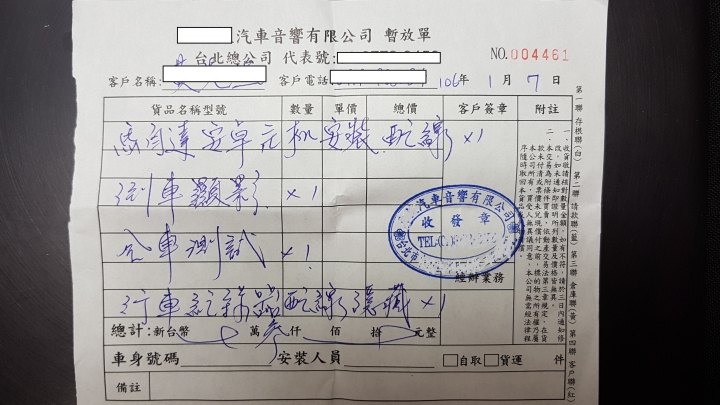 汽車音響有限公司 暫放單
台北總公司 代表號:
NO.004461
客戶名稱: 客戶電話 106年 1月 7日
貨品名稱型號 數量 單價 總價 客戶簽章 附註
馬自達安卓主機安裝.配線 x1
倒車顯影 x1
全車測試 x1
行車紀錄器配線隱藏 x1
汽車音響有限公司
收發章
TEL:
台北市
經辦業務
總計:新台幣 萬 仟 佰 拾 元整
車身號碼 安裝人員 □自取□貨運 件
備註
第一聯 存根聯(白) 第二聯 請款聯(藍) 第三聯 倉庫聯(黃) 第四聯 客戶聯(紅)